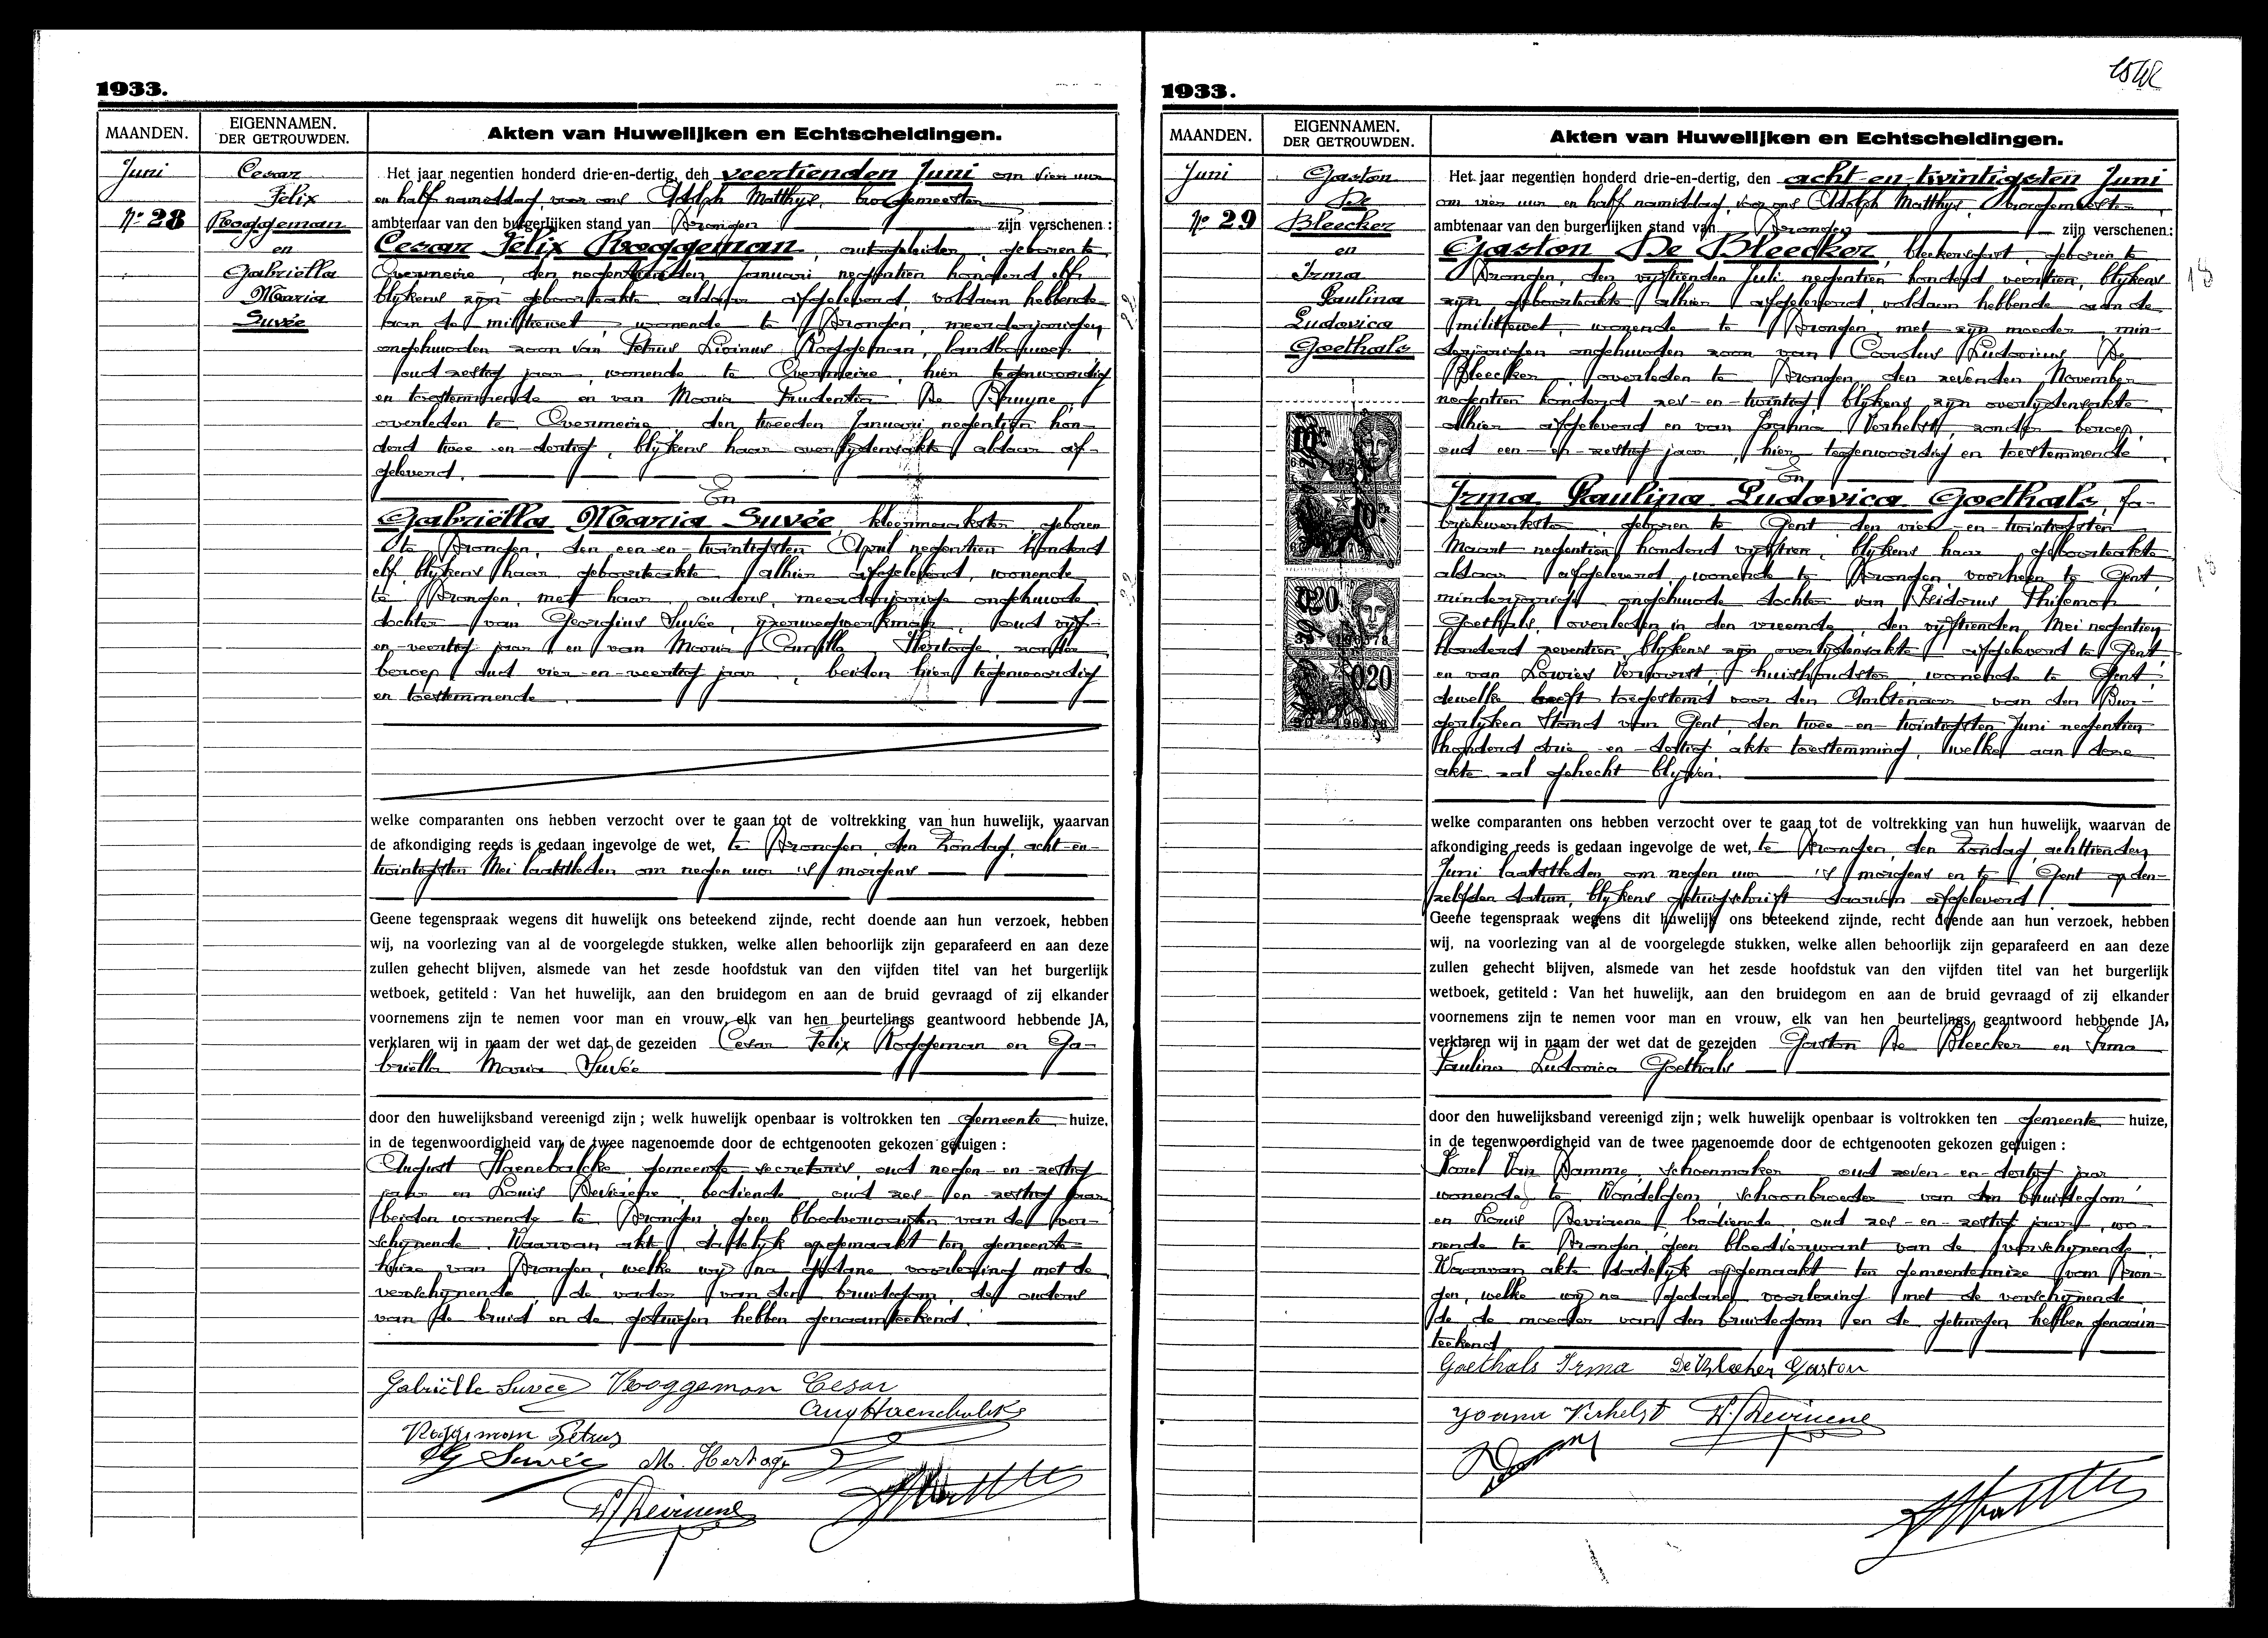 1933.
MAANDEN.
EIGENNAMEN.
DER GETROUWDEN.
Akten van Huwelijken en Echtscheidingen.
Juni
Nr 28
Cesar
Felix
Roggeman
en
Gabriella
Maria
Suvée
Het jaar negentien honderd drie-en-dertig, den veertienden Juni om vier uur
en half namiddag, voor ons Adolph Matthys, burgemeester
ambtenaar van den burgerlijken stand van Drongen zijn verschenen :
Cesar Felix Roggeman, autogeleider, geboren te
Overmeire, den negentienden Januari negentien honderd elf
blijkens zijn geboorteakte aldaar afgeleverd, voldaan hebbende
aan de militiewet, wonende te Drongen, meerderjarigen
ongehuwden zoon van Petrus Livinus Roggeman, landbouwer
oud zestig jaar, wonende te Overmeire, hier tegenwoordig
en toestemmende en van Maria Prudentia De Bruyne,
overleden te Overmeire, den tweeden Januari negentien hon-
derd twee-en-dertig, blijkens haar overlijdensakte aldaar af-
geleverd.
En
Gabriëlla Maria Suvée, kleermaakster, geboren
te Drongen, den een-en-twintigsten April negentien honderd
elf, blijkens haar geboorteakte alhier afgeleverd, wonende
te Drongen, met haar ouders, meerderjarige ongehuwde
dochter van Georgius Suvée, ijzerwegwerkman, oud vijf-
en-veertig jaar en van Maria Camilla Hertoge, zonder
beroep, oud vier-en-veertig jaar, beiden hier tegenwoordig
en toestemmende.
welke comparanten ons hebben verzocht over te gaan tot de voltrekking van hun huwelijk, waarvan
de afkondiging reeds is gedaan ingevolge de wet, te Drongen, den Zondag, acht-en-
twintigsten Mei laatstleden om negen uur 's morgens
Geene tegenspraak wegens dit huwelijk ons beteekend zijnde, recht doende aan hun verzoek, hebben
wij, na voorlezing van al de voorgelegde stukken, welke allen behoorlijk zijn geparafeerd en aan deze
zullen gehecht blijven, alsmede van het zesde hoofdstuk van den vijfden titel van het burgerlijk
wetboek, getiteld : Van het huwelijk, aan den bruidegom en aan de bruid gevraagd of zij elkander
voornemens zijn te nemen voor man en vrouw, elk van hen beurtelings geantwoord hebbende JA,
verklaren wij in naam der wet dat de gezeiden Cesar Felix Roggeman en Ga-
briella Maria Suvée
door den huwelijksband vereenigd zijn ; welk huwelijk openbaar is voltrokken ten gemeente huize,
in de tegenwoordigheid van de twee nagenoemde door de echtgenooten gekozen getuigen :
August Haenebalcke gemeente-secretaris, oud negen-en-zestig
jaar en Louis Deviaene, bediende, oud zes-en-zestig jaar
beiden wonende te Drongen, geen bloedverwanten van de ver-
schijnende. Waarvan akte, dadelijk opgemaakt ten gemeente-
huize van Drongen, welke wij na gedane voorlezing met de
verschijnende, de vader van den bruidegom, de ouders
van de bruid en de getuigen hebben genaamteekend.
Gabriëlle Suvée Roggeman Cesar
Aug Haenebalcke
Roggeman Petrus
G Suvée M. Hertoge
1933.
MAANDEN.
EIGENNAMEN.
DER GETROUWDEN.
Akten van Huwelijken en Echtscheidingen.
Juni
Nr 29
Gaston
De
Bleecker
en
Irma
Paulina
Ludovica
Goethals
020
020
Het jaar negentien honderd drie-en-dertig, den acht-en-twintigsten Juni
om vier uur en half namiddag, voor ons Adolph Matthys, burgemeester
ambtenaar van den burgerlijken stand van Drongen zijn verschenen :
Gaston De Bleecker, bleekersgast, geboren te
Drongen, den vijftienden Juli negentien honderd veertien, blijkens
zijn geboorteakte alhier afgeleverd, voldaan hebbende aan de
militiewet, wonende te Drongen, met zijn moeder, min-
derjarigen ongehuwden zoon van Carolus Ludovicus De
Bleecker, overleden te Drongen, den zevenden November
negentien honderd zes-en-twintig, blijkens zijn overlijdensakte
alhier afgeleverd en van Joanna Verhelst, zonder beroep,
oud een-en-zestig jaar, hier tegenwoordig en toestemmende.
En
Irma Paulina Ludovica Goethals, fa-
briekwerkster, geboren te Gent den vier-en-twintigsten
Maart negentien honderd vijftien, blijkens haar geboorteakte
aldaar afgeleverd, wonende te Drongen, voorheen te Gent,
minderjarige ongehuwde dochter van Isidorus Philemon
Goethals, overleden in den vreemde, den vijftienden Mei negentien
honderd zeventien, blijkens zijn overlijdensakte afgeleverd te Gent
en van Lowies Vervoorst, huishoudster, wonende te Gent,
dewelke heeft toegestemd voor den Ambtenaar van den Bur-
gerlijken Stand van Gent, den twee-en-twintigsten Juni negentien
honderd drie-en-dertig, akte toestemming, welke aan deze
akte zal gehecht blijven.
welke comparanten ons hebben verzocht over te gaan tot de voltrekking van hun huwelijk, waarvan de
afkondiging reeds is gedaan ingevolge de wet, te Drongen, den Zondag, achttienden
Juni laatstleden om negen uur 's morgens en te Gent op den-
zelfden datum, blijkens getuigschrift daarvan afgeleverd.
Geene tegenspraak wegens dit huwelijk ons beteekend zijnde, recht doende aan hun verzoek, hebben
wij, na voorlezing van al de voorgelegde stukken, welke allen behoorlijk zijn geparafeerd en aan deze
zullen gehecht blijven, alsmede van het zesde hoofdstuk van den vijfden titel van het burgerlijk
wetboek, getiteld : Van het huwelijk, aan den bruidegom en aan de bruid gevraagd of zij elkander
voornemens zijn te nemen voor man en vrouw, elk van hen beurtelings geantwoord hebbende JA,
verklaren wij in naam der wet dat de gezeiden Gaston De Bleecker en Irma
Paulina Ludovica Goethals
door den huwelijksband vereenigd zijn ; welk huwelijk openbaar is voltrokken ten gemeente huize,
in de tegenwoordigheid van de twee nagenoemde door de echtgenooten gekozen getuigen :
Karel Van Damme, schoenmaker, oud zeven-en-dertig jaar
wonende te Wondelgem, schoonbroeder van den bruidegom
en Louis Deviaene, bediende, oud zes-en-zestig jaar, wo-
nende te Drongen, geen bloedverwant van de verschijnende.
Waarvan akte dadelijk opgemaakt ten gemeentehuize van Dron-
gen, welke wij na gedane voorlezing met de verschijnende
de moeder van den bruidegom en de getuigen hebben genaam-
teekend.
Goethals Irma De Bleecker Gaston
Joana Verhelst